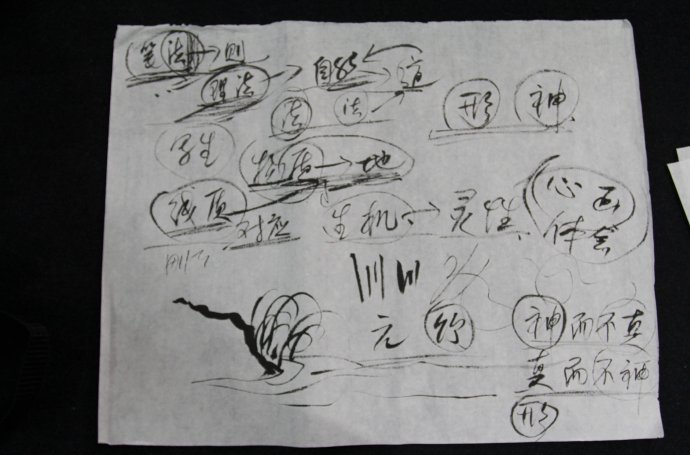 笔法→则
理法→自然→道
法 法→
形 神
写生
物质→地
线质
对应
生机→灵性
心画
体会
元 竹
神而不真
真而不神
形